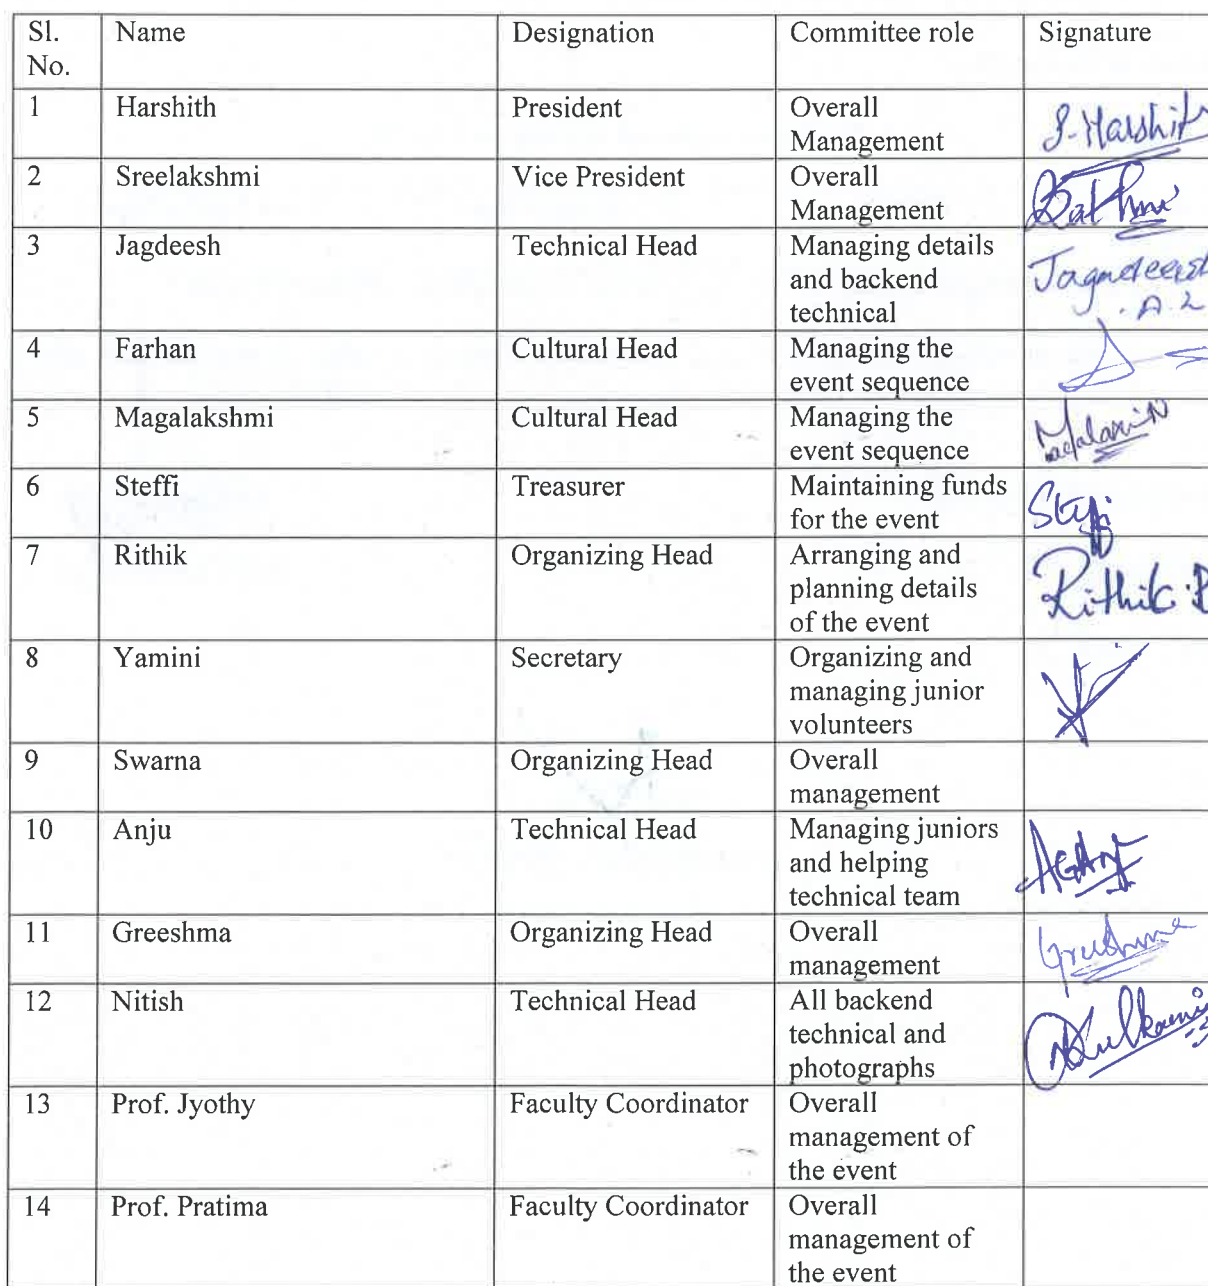 Sl. No. Name Designation Committee role Signature
1 Harshith President Overall Management S. Harshith
2 Sreelakshmi Vice President Overall Management
3 Jagdeesh Technical Head Managing details and backend technical Jagadeesh . A. L
4 Farhan Cultural Head Managing the event sequence
5 Magalakshmi Cultural Head Managing the event sequence
6 Steffi Treasurer Maintaining funds for the event Steffi
7 Rithik Organizing Head Arranging and planning details of the event Rithik
8 Yamini Secretary Organizing and managing junior volunteers
9 Swarna Organizing Head Overall management
10 Anju Technical Head Managing juniors and helping technical team
11 Greeshma Organizing Head Overall management Greeshma
12 Nitish Technical Head All backend technical and photographs
13 Prof. Jyothy Faculty Coordinator Overall management of the event
14 Prof. Pratima Faculty Coordinator Overall management of the event